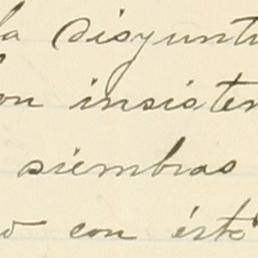 la disyunti
on insisten
siembras
o con ésto